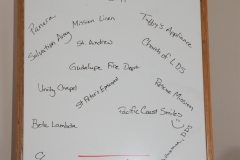 Panera
Mission Linen
Tiffy's Appliance
Salvation Army
St. Andrew
Church of LDS
Guadalupe Fire Dept
Rescue Mission
Unity Chapel
St Peter's Episcopal
Pacific Coast Smiles
Beta Lambda
DDS